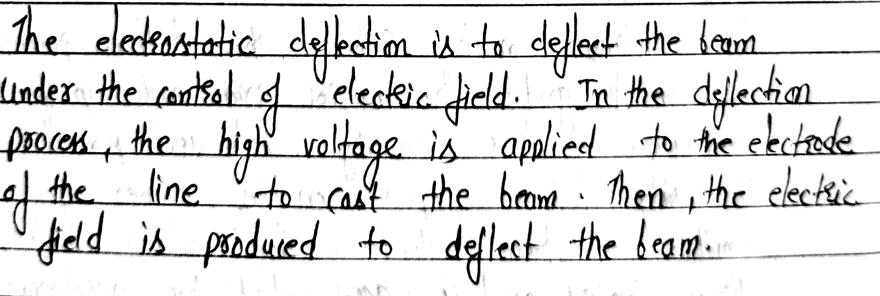 The electrostatic deflection is to deflect the beam
under the control of electric field. In the deflection
process, the high voltage is applied to the electrode
of the line to cast the beam. Then, the electric
field is produced to deflect the beam.